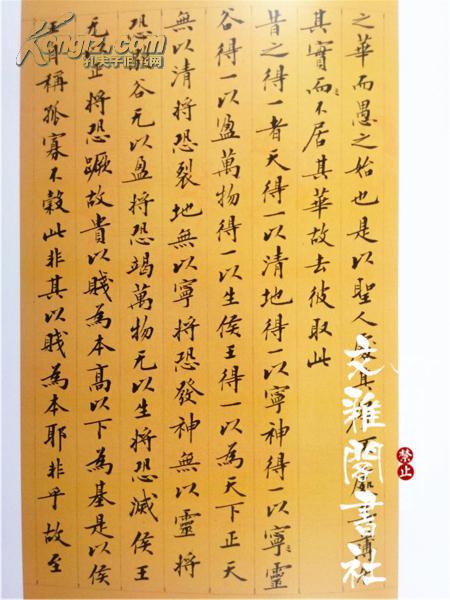 之華而愚之始也是以聖人處其不處其薄
其實而不居其華故去彼取此
昔之得一者天得一以清地得一以寧神得一以寧靈
谷得一以盈萬物得一以生侯王得一以為天下正天
無以清將恐裂地無以寧將恐發神無以靈將
恐歇谷无以盈將恐竭萬物无以生將恐滅侯王
无以正將恐蹶故貴以賤為本高以下為基是以侯
王自稱孤寡不穀此非其以賤為本耶非乎故至
文雅閣書社
禁止
孔夫子旧书网